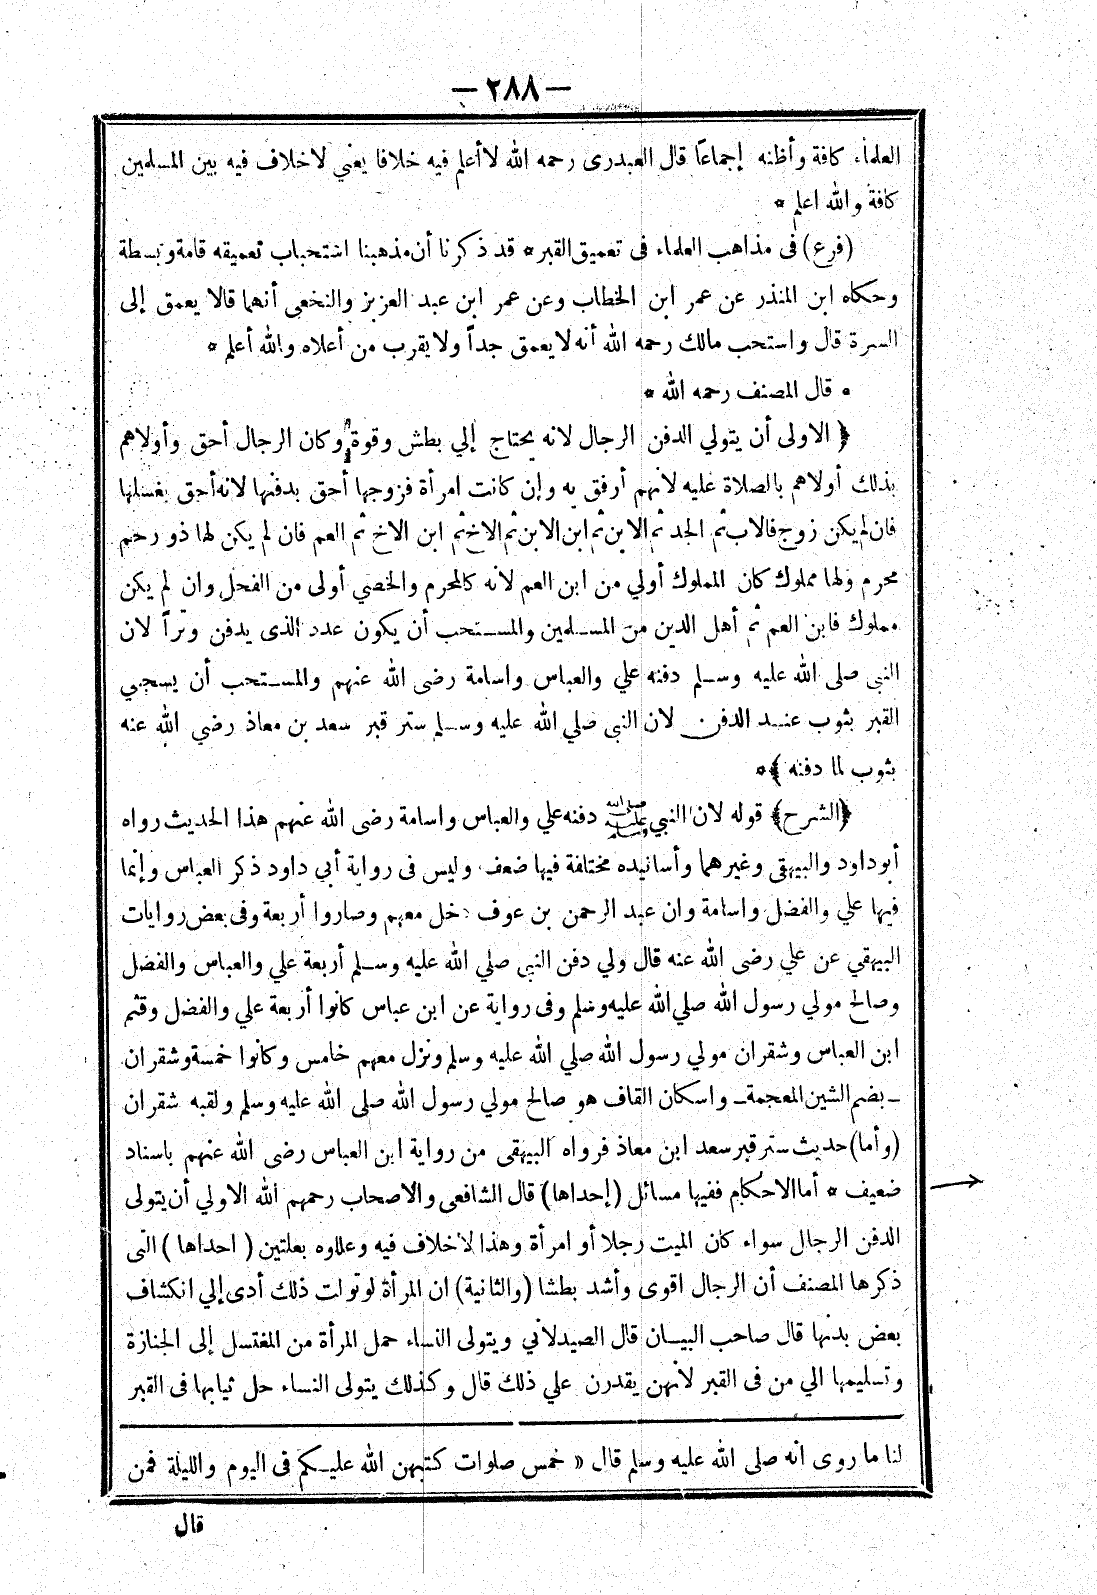 — ٢٨٨ —
العلماء كافة وأظنه إجماعا قال العبدرى رحمه الله لا أعلم فيه خلافا يعني لاخلاف فيه بين المسلمين
كافة والله اعلم *
(فرع) فى مذاهب العلماء فى تعميق القبر * قد ذكرنا أن مذهبنا استحباب تعميقه قامة وبسطة
وحكاه ابن المنذر عن عمر ابن الخطاب وعن عمر ابن عبد العزيز والنخعى أنهما قالا يعمق إلى
السرة قال واستحب مالك رحمه الله أنه لايعمق جداً ولا يقرب من أعلاه والله أعلم *
* قال المصنف رحمه الله *
﴿ الاولى أن يتولي الدفن الرجال لانه يحتاج إلي بطش وقوة وكان الرجال أحق وأولاهم
بذلك أولاهم بالصلاة عليه لانهم أرفق به وإن كانت امرأة فزوجها أحق بدفنها لانه أحق بغسلها
فان لم يكن زوج فالاب ثم الجد ثم الابن ثم ابن الابن ثم الاخ ثم ابن الاخ ثم العم فان لم يكن لها ذو رحم
محرم ولها مملوك كان المملوك أولي من ابن العم لانه كالمحرم والخصي أولى من الفحل وان لم يكن
مملوك فابن العم ثم أهل الدين من المسلمين والمستحب أن يكون عدد الذى يدفن وتراً لان
النبي صلى الله عليه وسلم دفنه علي والعباس واسامة رضى الله عنهم والمستحب أن يسجي
القبر بثوب عند الدفن لان النبي صلي الله عليه وسلم ستر قبر سعد بن معاذ رضي الله عنه
بثوب لما دفنه ﴾ *
﴿الشرح﴾ قوله لان النبي صلى الله عليه وسلم دفنه علي والعباس واسامة رضى الله عنهم هذا الحديث رواه
أبوداود والبيهقى وغيرهما وأسانيده مختلفة فيها ضعف وليس فى رواية أبي داود ذكر العباس وإنما
فيها علي والفضل واسامة وان عبد الرحمن بن عوف دخل معهم وصاروا أربعة وفى بعض روايات
البيهقي عن علي رضى الله عنه قال ولي دفن النبى صلي الله عليه وسلم أربعة علي والعباس والفضل
وصالح مولي رسول الله صلي الله عليه وسلم وفى رواية عن ابن عباس كانوا أربعة علي والفضل وقثم
ابن العباس وشقران مولي رسول الله صلي الله عليه وسلم ونزل معهم خامس وكانوا خمسة وشقران
ـ بضم الشين المعجمة ـ واسكان القاف هو صالح مولي رسول الله صلى الله عليه وسلم ولقبه شقران
(وأما) حديث ستر قبر سعد ابن معاذ فرواه البيهقى من رواية ابن العباس رضى الله عنهم باسناد
ضعيف * أما الاحكام ففيها مسائل (إحداها) قال الشافعى والاصحاب رحمهم الله الاولي أن يتولى
الدفن الرجال سواء كان الميت رجلا أو امرأة وهذا لاخلاف فيه وعللوه بعلتين (احداها) التى
ذكرها المصنف أن الرجال اقوى وأشد بطشا (والثانية) ان المرأة لو تولت ذلك أدى إلي انكشاف
بعض بدنها قال صاحب البيان قال الصيدلاني ويتولى النساء حمل المرأة من المغتسل إلى الجنازة
وتسليمها الي من فى القبر لأنهن يقدرن علي ذلك قال وكذلك يتولى النساء حل ثيابها فى القبر
لنا ما روى انه صلى الله عليه وسلم قال « خمس صلوات كتبهن الله عليكم فى اليوم والليلة فمن
قال